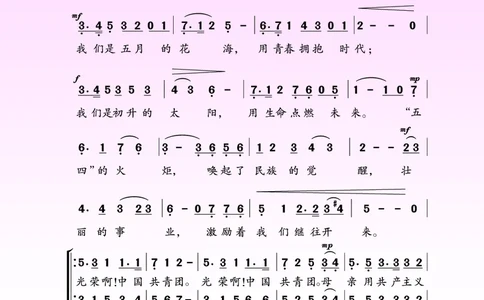 mf
3. 4 5 3 3 2 0 1 | 7. 1 2 5 - | 6. 7 1 4 3 0 1 | 2 - - 0 |
我们是五月的花海，用青春拥抱时代；
f mp
3. 4 5 3 5 1 | 4 3 6 - | 7. 1 2 7 6 0 5 | 1 - 1 0 7 |
我们是初升的太阳，用生命点燃未来。“五
mf
6. 1 7 6 | 3 - 3 6 5 6 | 1 2 3 4 3 | 2 - - 2 3 |
四”的火炬，唤起了民族的觉醒，壮
4. 4 3 2 3 | 6 - 0 7 7 6 | 5 6 0 1 2. 3 #4 | 5 - - 0 |
丽的事业，激励着我们继往开来。
mp
5. 3 1 1. 1 | 7 1 2 5 - | 5. 3 1 1. 1 | 7 1 2 5 3 4 | 5. 5 3. 3 3 2
光荣啊!中国共青团。光荣啊!中国共青团。母亲用共产主义